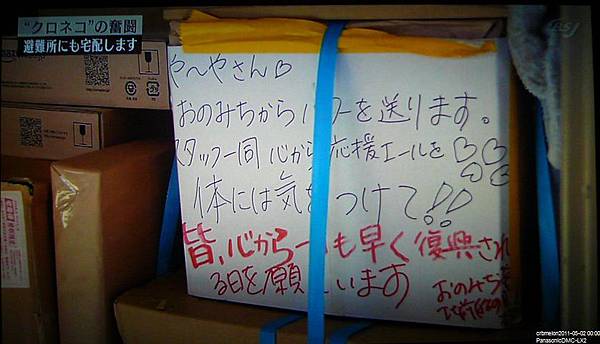 “クロネコ”の奮闘
避難所にも宅配します
や〜やさん♡
おのみちから ワーを送ります。
スタッフ一同 心から 応援エールを♡♡♡♡
体には気を つけて!!
皆、心から一 も早く復興され
る日を願 います
おのみち
crbmelon2011-05-02 00:00
PanasonicDMC-LX2